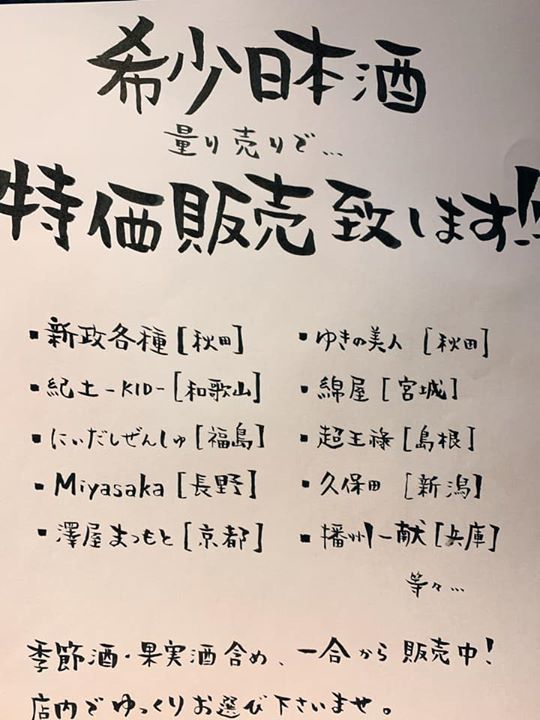 希少日本酒
量り売りで…
特価販売致します!!
▪新政各種[秋田]
▪紀土-KID-[和歌山]
▪にいだしぜんしゅ[福島]
▪Miyasaka[長野]
▪澤屋まつもと[京都]
▪ゆきの美人[秋田]
▪綿屋[宮城]
▪超王祿[島根]
▪久保田[新潟]
▪播州一献[兵庫]
等々…
季節酒・果実酒含め、一合から販売中!
店内でゆっくりお選び下さいませ。